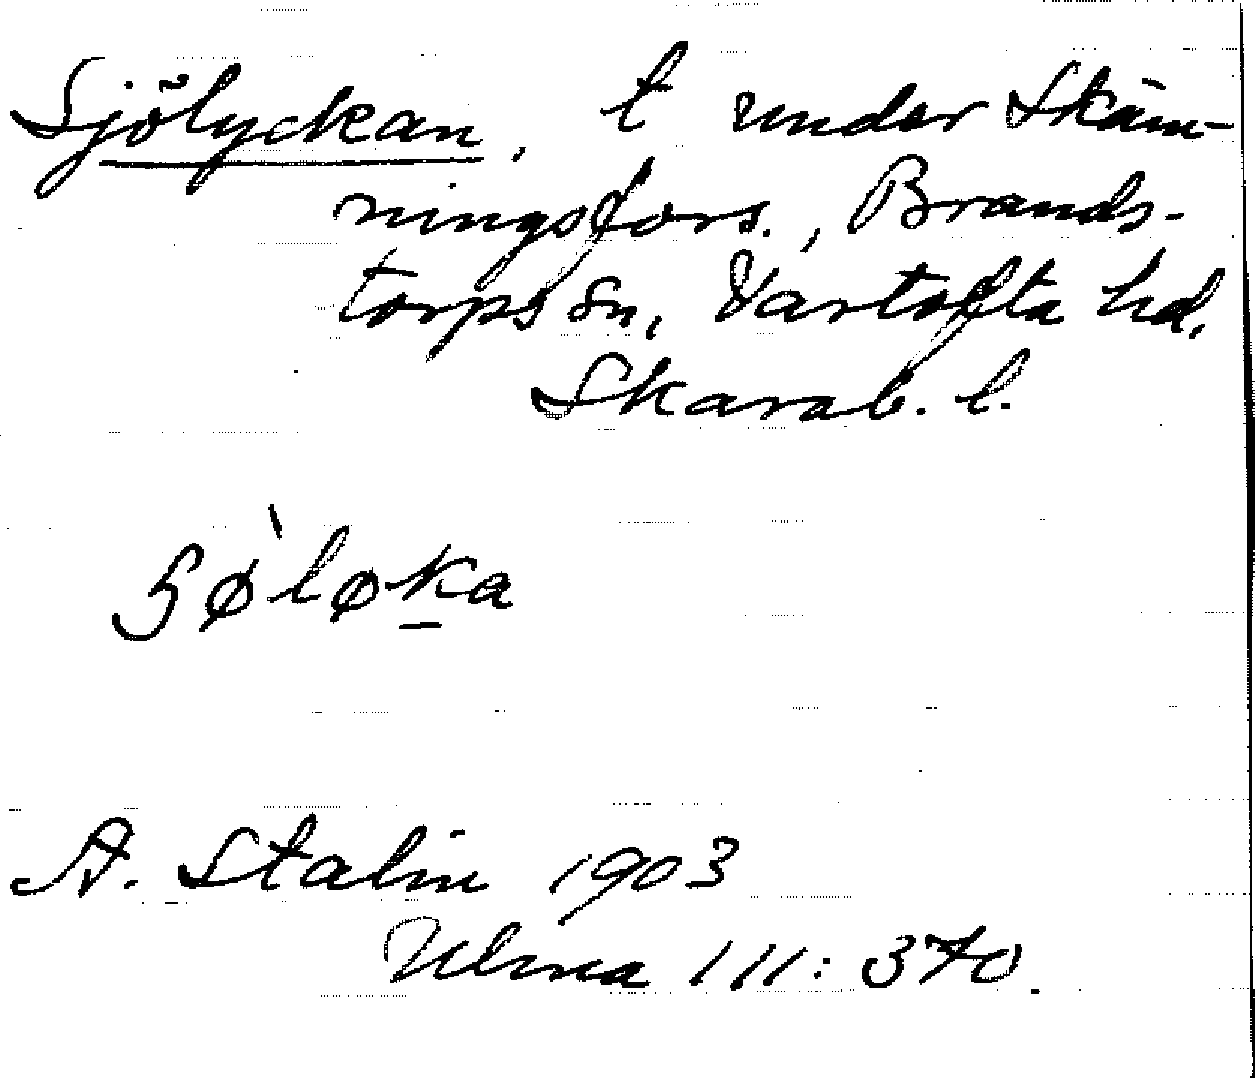 Sjölyckan, t under Skäm-
ningsfors., Brands-
torps sn, Vartofta hd,
Skarab. l.
Sø̀løka
A. Stalin 1903
Ulma 111: 370.